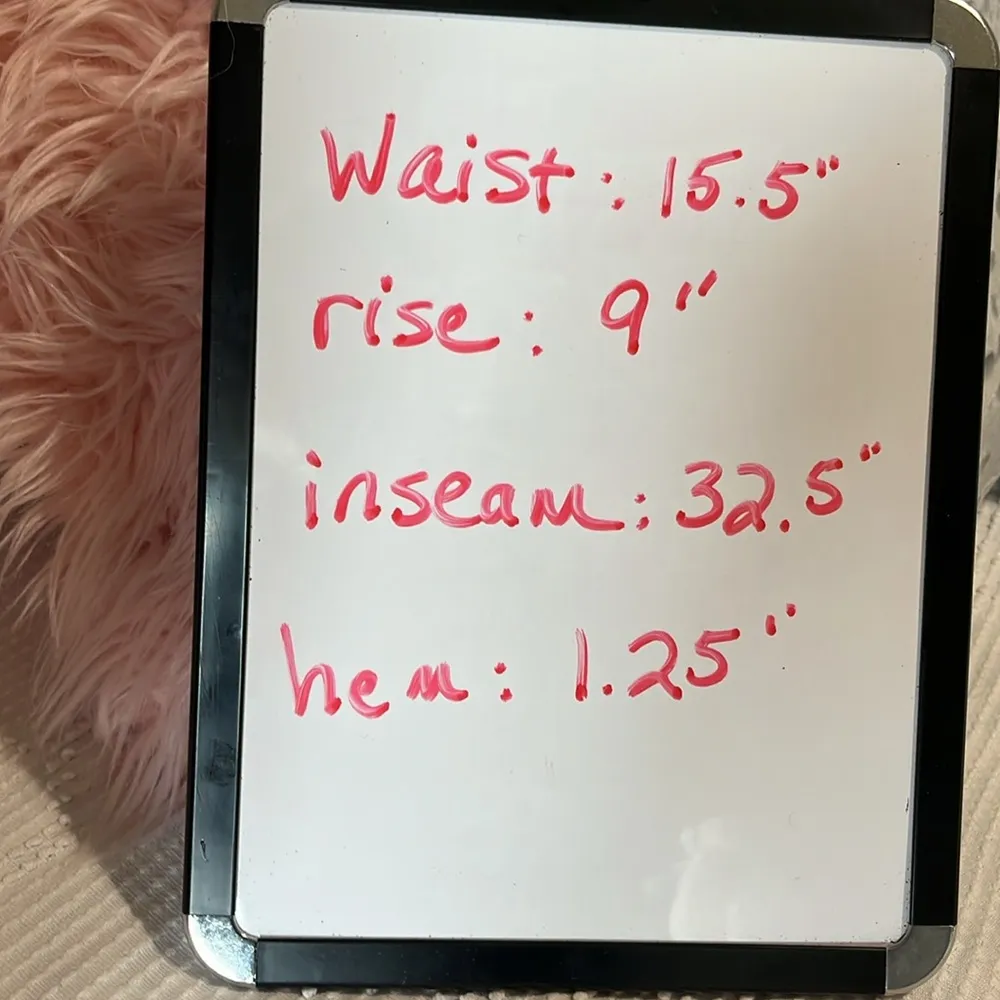 Waist: 15.5"
rise: 9"
inseam: 32.5"
hem: 1.25"